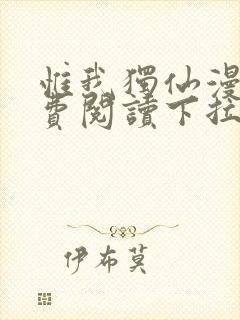 惟我獨仙漫
費閱讀下拉
伊布莫